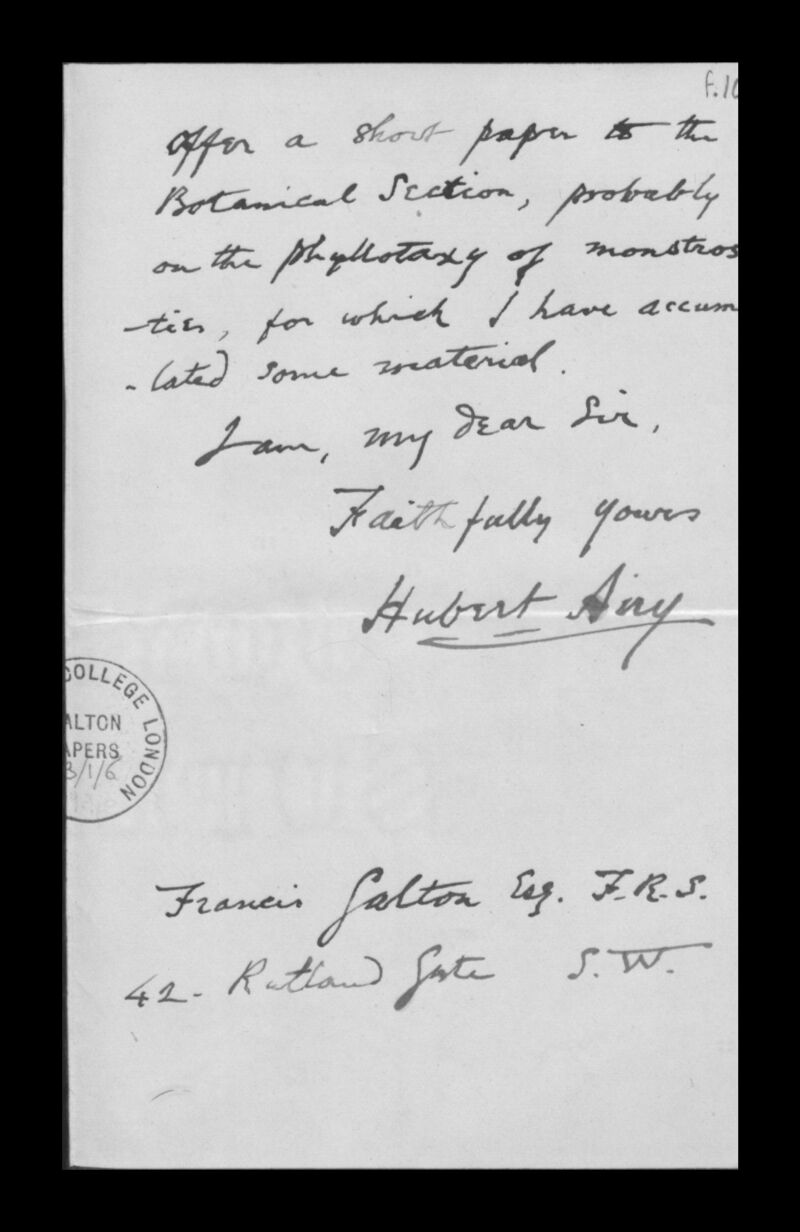 f.10
offer a short paper to the
Botanical Section, probably
on the phyllotaxy of monstros
-ties, for which I have accum
-lated some material.
I am, my dear Sir,
Faithfully yours
Hubert Airy
COLLEGE LONDON
ALTON
APERS
3/1/6
Francis Galton Esq. F.R.S.
42. Rutland Gate S.W.